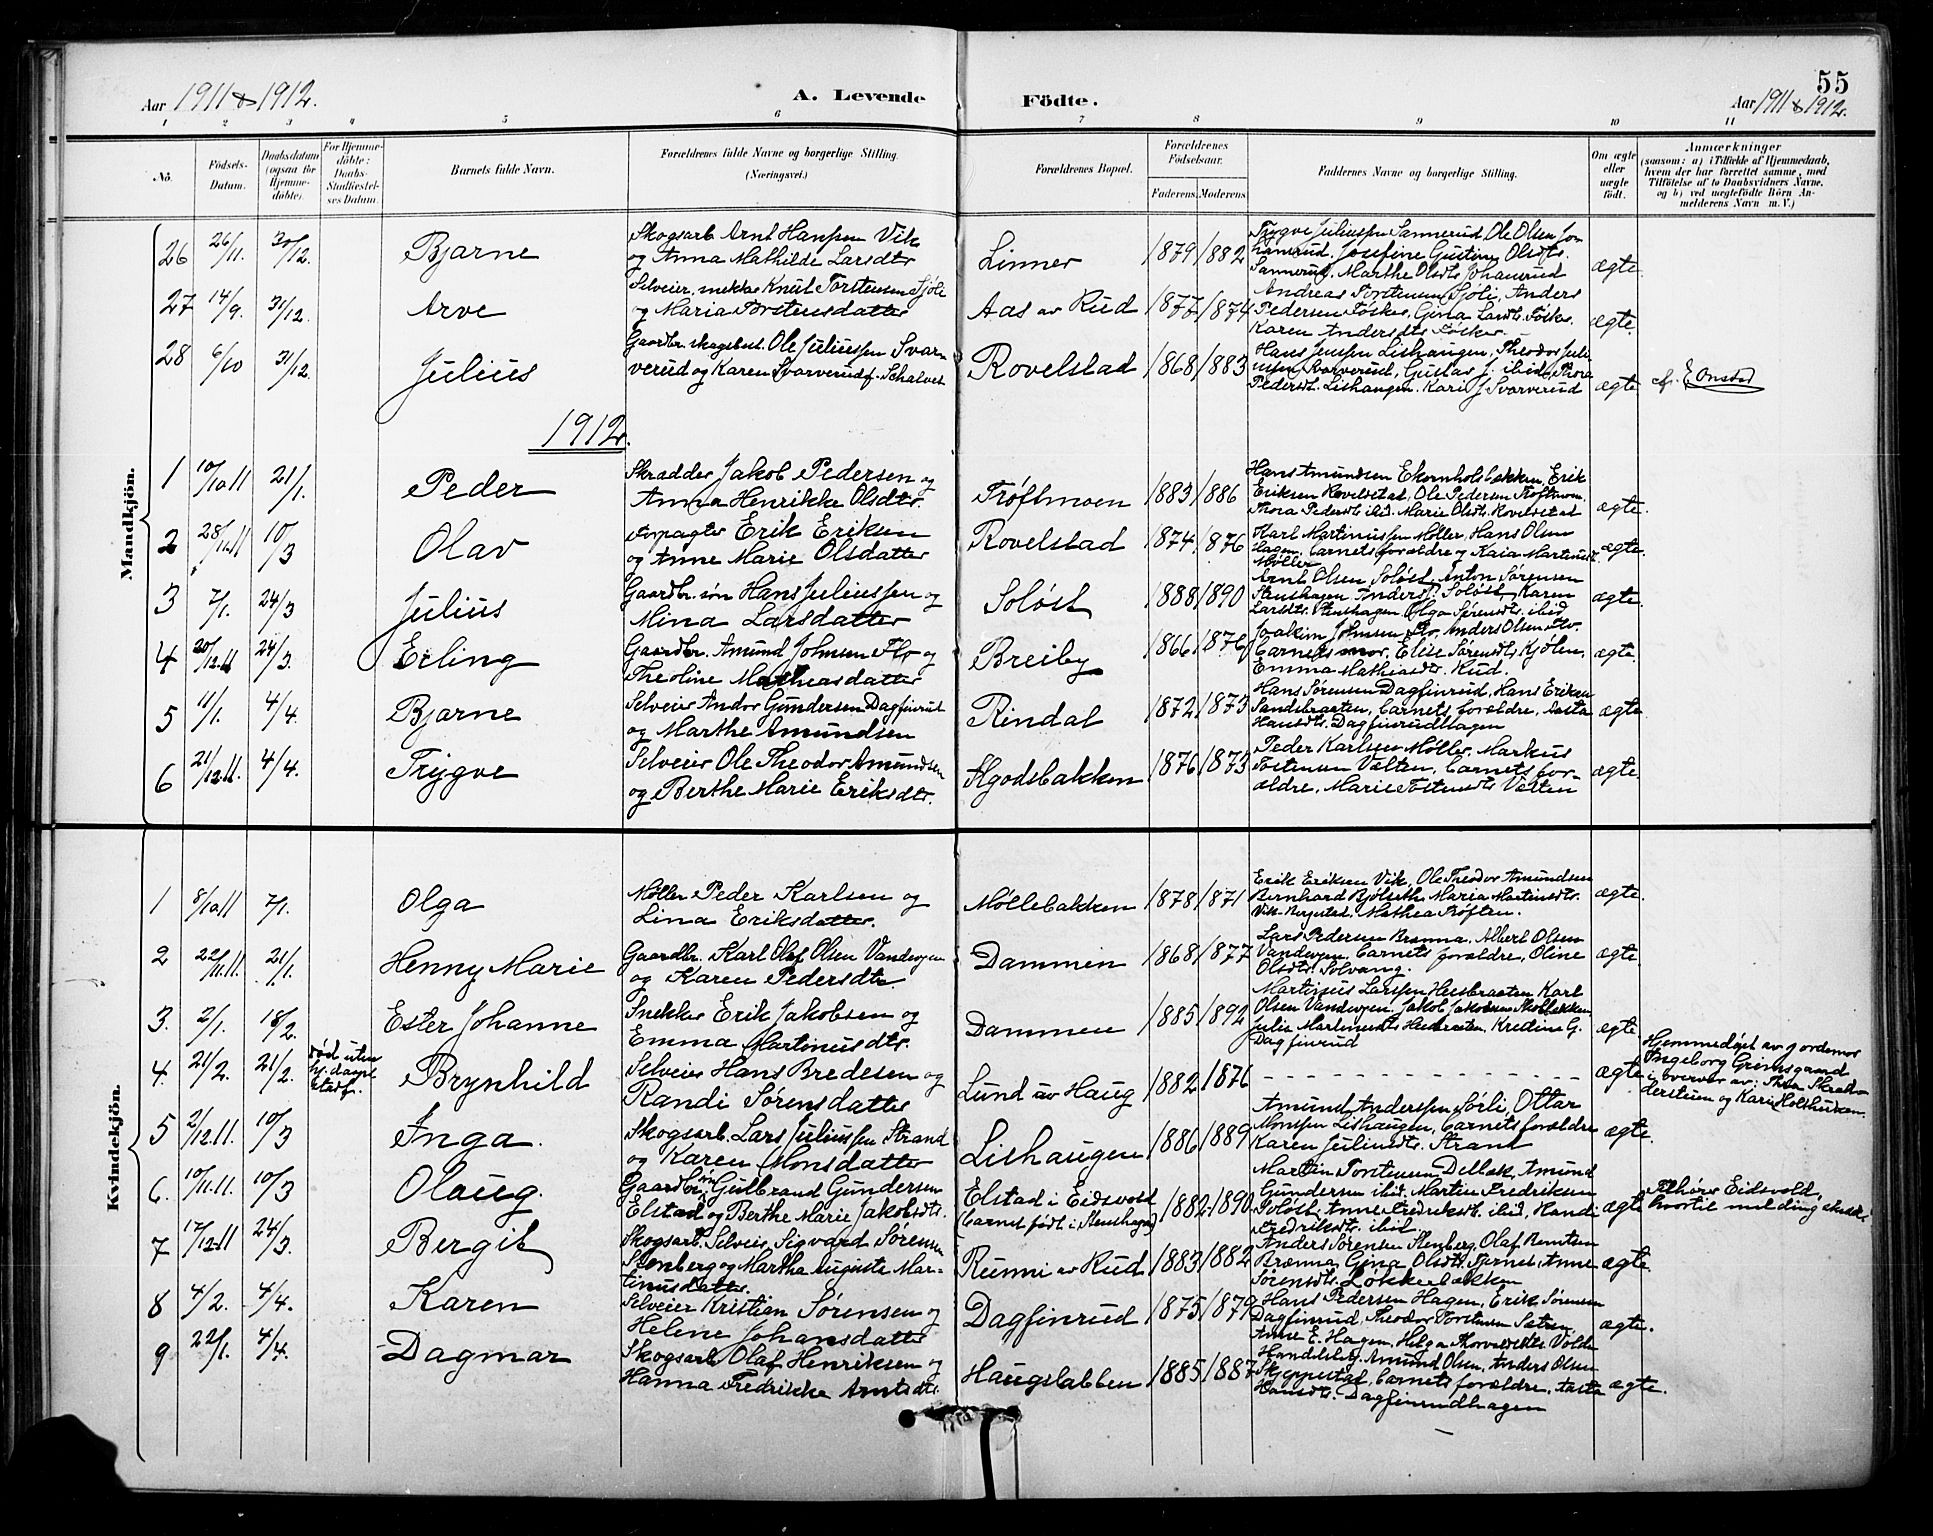 Aar 1911 & 1912.
A. Levende
Födte.
55
Aar 1911 & 1912.
1 2 3 4 5 6 7 8 9 10 11
No.
Födsels-Datum.
Daabsdatum (ogsaa for Hjemmedöbte).
For Hjemmedöbte: Daabs-Stadfæstelses Datum.
Barnets fulde Navn.
Forældrenes fulde Navne og borgerlige Stilling.
(Næringsvei.)
Forældrenes Bopæl.
Forældrenes Födselsaar.
Faderens. Moderens.
Faddernes Navne og borgerlige Stilling.
Om ægte eller uægte födt.
Anmærkninger
(saasom: a) i Tilfælde af Hjemmedaab, hvem der har forrettet samme, med Tilföielse af to Daabsvidners Navne, og b) ved uægtefödte Börn Anmelderens Navn m. V.)
Mandkjön.
26 26/11. 30/12. Bjarne
Skogsarb. Arnt Hansen Vik
og Anna Mathilde Larsdtr
Linner 1879 1882
Trygve Juliussen Sannerud, Ole Olsen
Josefine Gustava Olsdtr.
Sannerud, Marthe Olsdtr Johanerud
ægte.
27 14/9. 31/12. Arve
Selveier, snekker Knut Torstensen Sjöli
og Maria Torstensdatter
Aas av Rud 1877 1874
Andreas Torstensen Sjöli, Anders
Pedersen Fösker, Gina Larsdtr. Fösker.
Karen Andersdtr Fösker.
ægte.
28 6/10 31/12. Julius
Gaardbr. skogsbest. Ole Juliussen Svar-
verud og Karen Svarverud f. Schalvet
Rovelstad 1868 1883
Hans Jenssen Lishaugen, Theodor Juli-
ussen Svarverud, Gustav J. ibid, Thora
Pedersdtr. Lishaugen. Kari J Svarverud
ægte. af. E Onstad
1912.
1 10/10 11 21/1. Peder
Skrædder Jakob Pedersen og
Anna Henrikke Olsdtr.
Tröftmoen 1883 1886
Hans Amundsen Ekornholsbakken, Erik
Eriksen Rovelstad, Ole Pedersen Tröftmoen,
Thora Pedersdtr ibid. Marie Olsdtr. Rovelstad
ægte.
2 28/11.11 10/3 Olav
Forpagter Erik Eriksen
og Anne Marie Olsdatter
Rovelstad 1874 1876
Karl Martinussen Möller, Hans Olsen
Hagen, barnets forældre og Kaia Martinusdt.
Möller
ægte.
3 7/1. 24/3 Julius
Gaardbr. sön Hans Juliussen og
Mina Larsdatter
Solöst 1888 1890
Arnt Olsen, Solöst, Anton Sörensen
Stenshagen Anders J. Solöst, Karen
Larsdtr. Stenshagen Olga Sörensdtr. ibid
ægte.
4 20/12.11 24/3. Erling
Gaardbr. Amund Johnsen Flo og
Theoline Matheasdatter
Breiby 1866 1876
Joakim Johnsen Flo, Anders Olsen Flo.
barnets mor, Elise Sörensdtr Kjölen,
Emma Mathiasdtr. Rud.
ægte.
5 11/1. 4/4. Bjarne
Selveier Andor Gundersen Dagfinrud
og Marthe Amundsen
Rindal 1872 1873
Hans Sörensen Dagfinrud, Hans Eriksen
Sandsbraaten, barnets forældre, Aasta
Hansdtr. Dagfinrudhagen
ægte
6 21/12.11. 4/4. Trygve
Selveier Ole Theodor Amundsen
og Berthe Marie Eriksdtr.
Agodsbakken 1876 1873
Peder Karlsen Möller. Markus
Tostensen Vælten, barnets for-
ældre, Marie Tostensdtr Vælten
ægte.
Kvindekjön.
1 8/10 11 7/1. Olga
Möller Peder Karlsen og
Lina Eriksdatter.
Möllebakken 1878 1871
Erik Eriksen Vik, Ole Theodor Amundsen
Bernhard Bjölseth, Maria Martinsdtr.
Vik-Bergstad. Mathea Tröften.
ægte.
2 22/11.11. 21/1. Henny Marie
Gaardbr. Karl Olaf Olsen Vandvogen
og Karen Pedersdtr.
Dammen 1868 1877
Lars Pedersen Brænna, Albert Olsen
Vandvogen, barnets forældre, Oline
Olsdtr. Solvang.
ægte.
3. 2/1. 18/2. Ester Johanne
Snekker Erik Jakobsen og
Emma Martinusdtr.
Dammen 1885 1892
Martinus Larssen Heesbraaten Karl
Olsen Vandvogen, Jakob Jakobsen
Julie Martinusdtr Heesbraaten, Kredine G.
Dagfinrud
ægte
4. 21/2. 21/2. Död uten
hj. daaps
stadf.
Brynhild
Selveier Hans Bredesen og
Randi Sörensdatter
Lund av Haug 1882 1876
ægte
Hjemmedöpt av jordemor
Ingeborg Grimsgaard
i overvær av: Thea Skræd-
dersteien og Karin Holthusen.
5 2/12.11. 10/3 Inga.
Skogsarb. Lars Juliussen Strand
og Karen Monsdatter
Lishaugen 1886 1889
Amund Anderssen Sörli, Ottar
Monssen Lishaugen, barnets forældre
Karen Juliusdtr. Strand
ægte.
6. 10/11.11. 10/3 Olaug.
Gaardbr. sön Gulbrand Gundersen
Elstad og Berthe Marie Jakobsdtr.
Elstad i Eidsvold
(barnet födt i Stenshagen)
1882 1890
Martin Torstensen Delbæk, Amund
Gundersen ibid. Martin Fredriksen
Solöst, Anne Fredriksdtr. ibid, Randi
Fredriksdtr. ibid.
ægte
Tilhörer Eidsvold,
hvortil melding
7 17/12.11 24/3. Bergit
Skogsarb. Selveier, Sigvard Sörensen
Stenberg og Martha Auguste Mar-
tinusdatter.
Runni av Rud 1883 1882
Anders Sörensen Stenberg, Olaf Berntsen
Brænna, Gina Olsdtr. Tjernet, Anne
Sörensdtr. Lökkebakken
ægte.
8 4/2. 4/4. Karen
Selveier Kristian Sörensen og
Helene Johansdatter
Dagfinrud 1875 1879
Hans Pedersen Hagen, Erik Sörensen
Dagfinrud, Theodor Torstensen Satren,
Anne E. Hagen, Helga Thorvaldsdtr. Volden
ægte.
9 22/1. 4/4. Dagmar
Skogsarb. Olaf Henriksen og
Hanna Fredrikke Arntsdtr.
Haugslabben 1885 1887
Handelsbg. Amund Olsen, Anders Olsen
Skjeppestad, barnets forældre, Aasta
Hansdtr. Dagfinrudhagen
ægte.